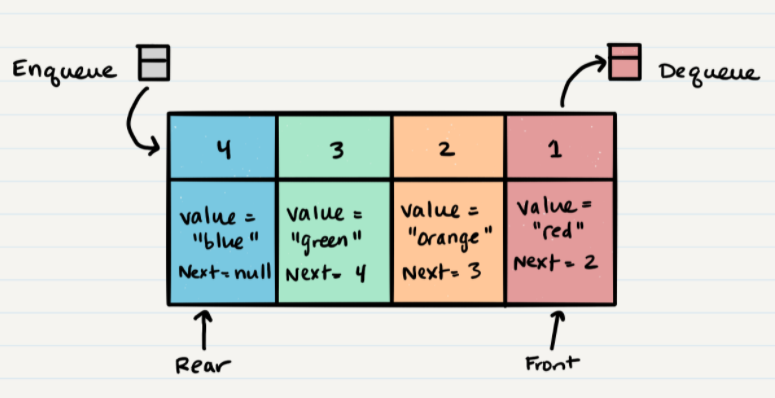 Enqueue
Dequeue
4
3
2
1
value =
"blue"
Next= null
value =
"green"
Next= 4
value =
"orange"
Next= 3
value =
"red"
Next= 2
Rear
Front